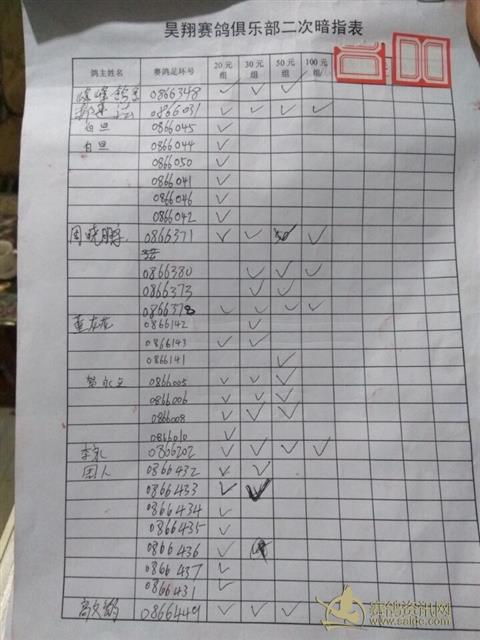 昊翔赛鸽俱乐部二次暗指表
鸽主姓名 赛鸽足环号 20元组 30元组 50元组 100元组
0866348 ✓ ✓ ✓
0866031 ✓ ✓ ✓ ✓
0866045 ✓
0866044 ✓
0866050 ✓
0866041 ✓
0866046 ✓
0866042 ✓
周晓鹏 0866371 ✓ ✓ 50 ✓
0866380 ✓ ✓ ✓
0866373 ✓ ✓
0866378 ✓ ✓ ✓ ✓
0866142 ✓
0866143 ✓ ✓
0866141 ✓
0866005 ✓ ✓ ✓
0866006 ✓ ✓ ✓
0866008 ✓ ✓ ✓
0866010 ✓
0866202 ✓ ✓ ✓ ✓
0866432 ✓ ✓
0866433 ✓ ✓
0866434 ✓
0866435 ✓
0866436 ✓
0866437 ✓
0866431 ✓
0866449 ✓ ✓ ✓ ✓
赛鸽资讯网
www.saige.com